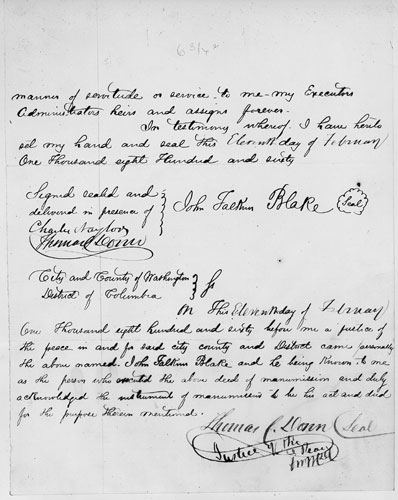 manner of servitude or service to me my Executors
Administrators heirs and assigns forever.
In testimony whereof. I have hereto
set my hand and seal this Eleventh day of Februay
One Thousand eight Hundred and sixty
Signed seald and
delivered in presence of
Charles Naylor
Thomas C. Donn
John Falkun Blake
Seal
City and County of Washington
District of Columbia
On This Eleventh day of Februay
One Thousand eight hundred and sixty before me a justice of
the peace in and for said city county and District came personally
the above named. John Falkun Blake and he being Known to me
as the person who executd the above deed of manumission and duly
acknowledged the instrument of manumission to be his act and deed
for the purpose therein mentioned.
Thomas C. Donn Seal
Justice of the
Peace